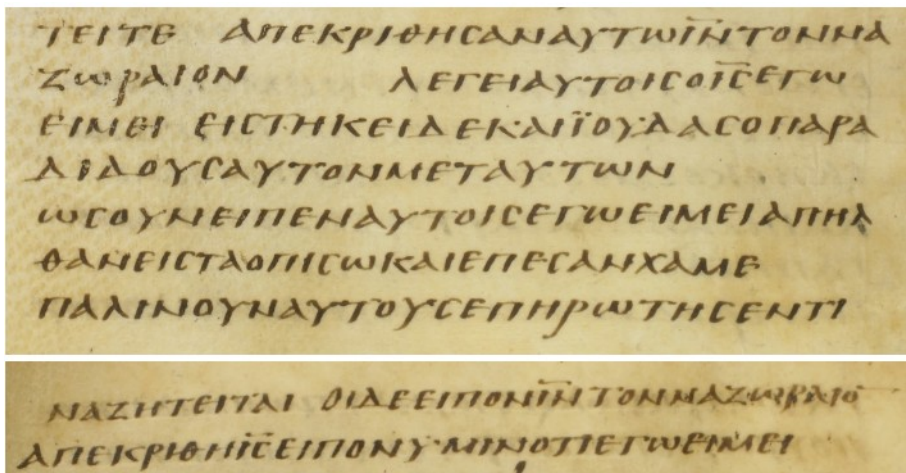 ΤΕΙΤΕ ΑΠΕΚΡΙΘΗСΑΝΑΥΤΩΙ̅Ν̅ΤΟΝΝΑ
ΖΩΡΑΙΟΝ ΛΕΓΕΙΑΥΤΟΙСΟΙ̅С̅ΕΓΩ
ΕΙΜΕΙ ΕΙСΤΗΚΕΙΔΕΚΑΙΪΟΥΔΑСΟΠΑΡΑ
ΔΙΔΟΥСΑΥΤΟΝΜΕΤΑΥΤΩΝ
ΩСΟΥΝΕΙΠΕΝΑΥΤΟΙСΕΓΩΕΙΜΕΙΑΠΗΛ
ΘΑΝΕΙСΤΑΟΠΙСΩΚΑΙΕΠΕСΑΝΧΑΜΕ
ΠΑΛΙΝΟΥΝΑΥΤΟΥСΕΠΗΡΩΤΗСΕΝΤΙ
ΝΑΖΗΤΕΙΤΑΙ ΟΙΔΕΕΙΠΟΝΙ̅Ν̅ΤΟΝΝΑΖΩΡΑΙΟ̅
ΑΠΕΚΡΙΘΗΙ̅С̅ΕΙΠΟΝΥΜΙΝΟΤΙΕΓΩΕΙΜΕΙ